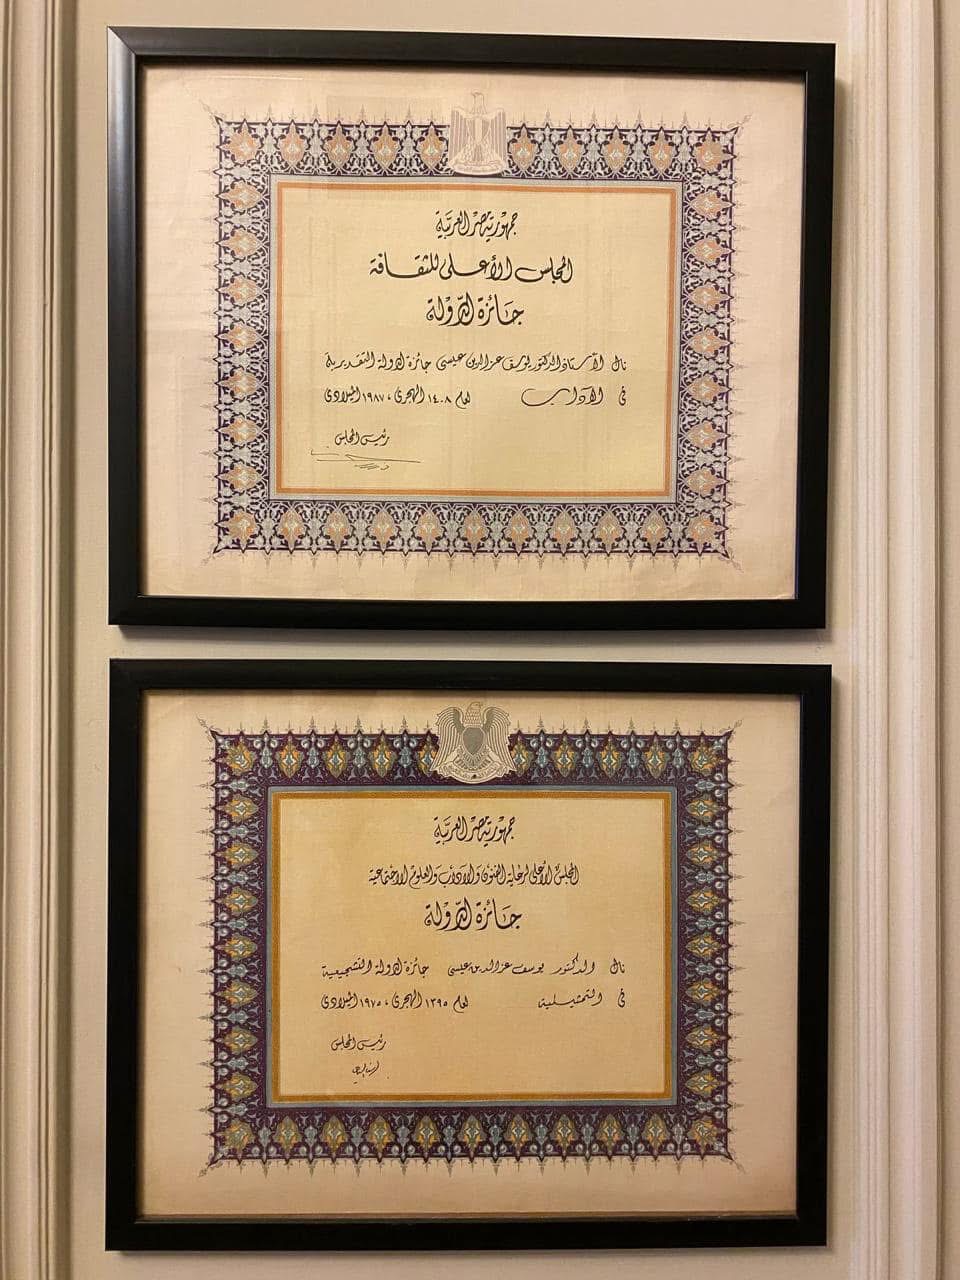 جمهورية مصر العربية
المجلس الأعلى للثقافة
جائزة الدولة
نال الأستاذ الدكتور يوسف عز الدين عيسى جائزة الدولة التقديرية
في الآداب لعام ١٤٠٨ الهجري ، ١٩٨٧ الميلادي
رئيس المجلس
جمهورية مصر العربية
المجلس الأعلى لرعاية الفنون والآداب والعلوم الاجتماعية
جائزة الدولة
نال الدكتور يوسف عز الدين عيسى جائزة الدولة التشجيعية
في التمثيلية لعام ١٣٩٥ الهجري ، ١٩٧٥ الميلادي
رئيس المجلس